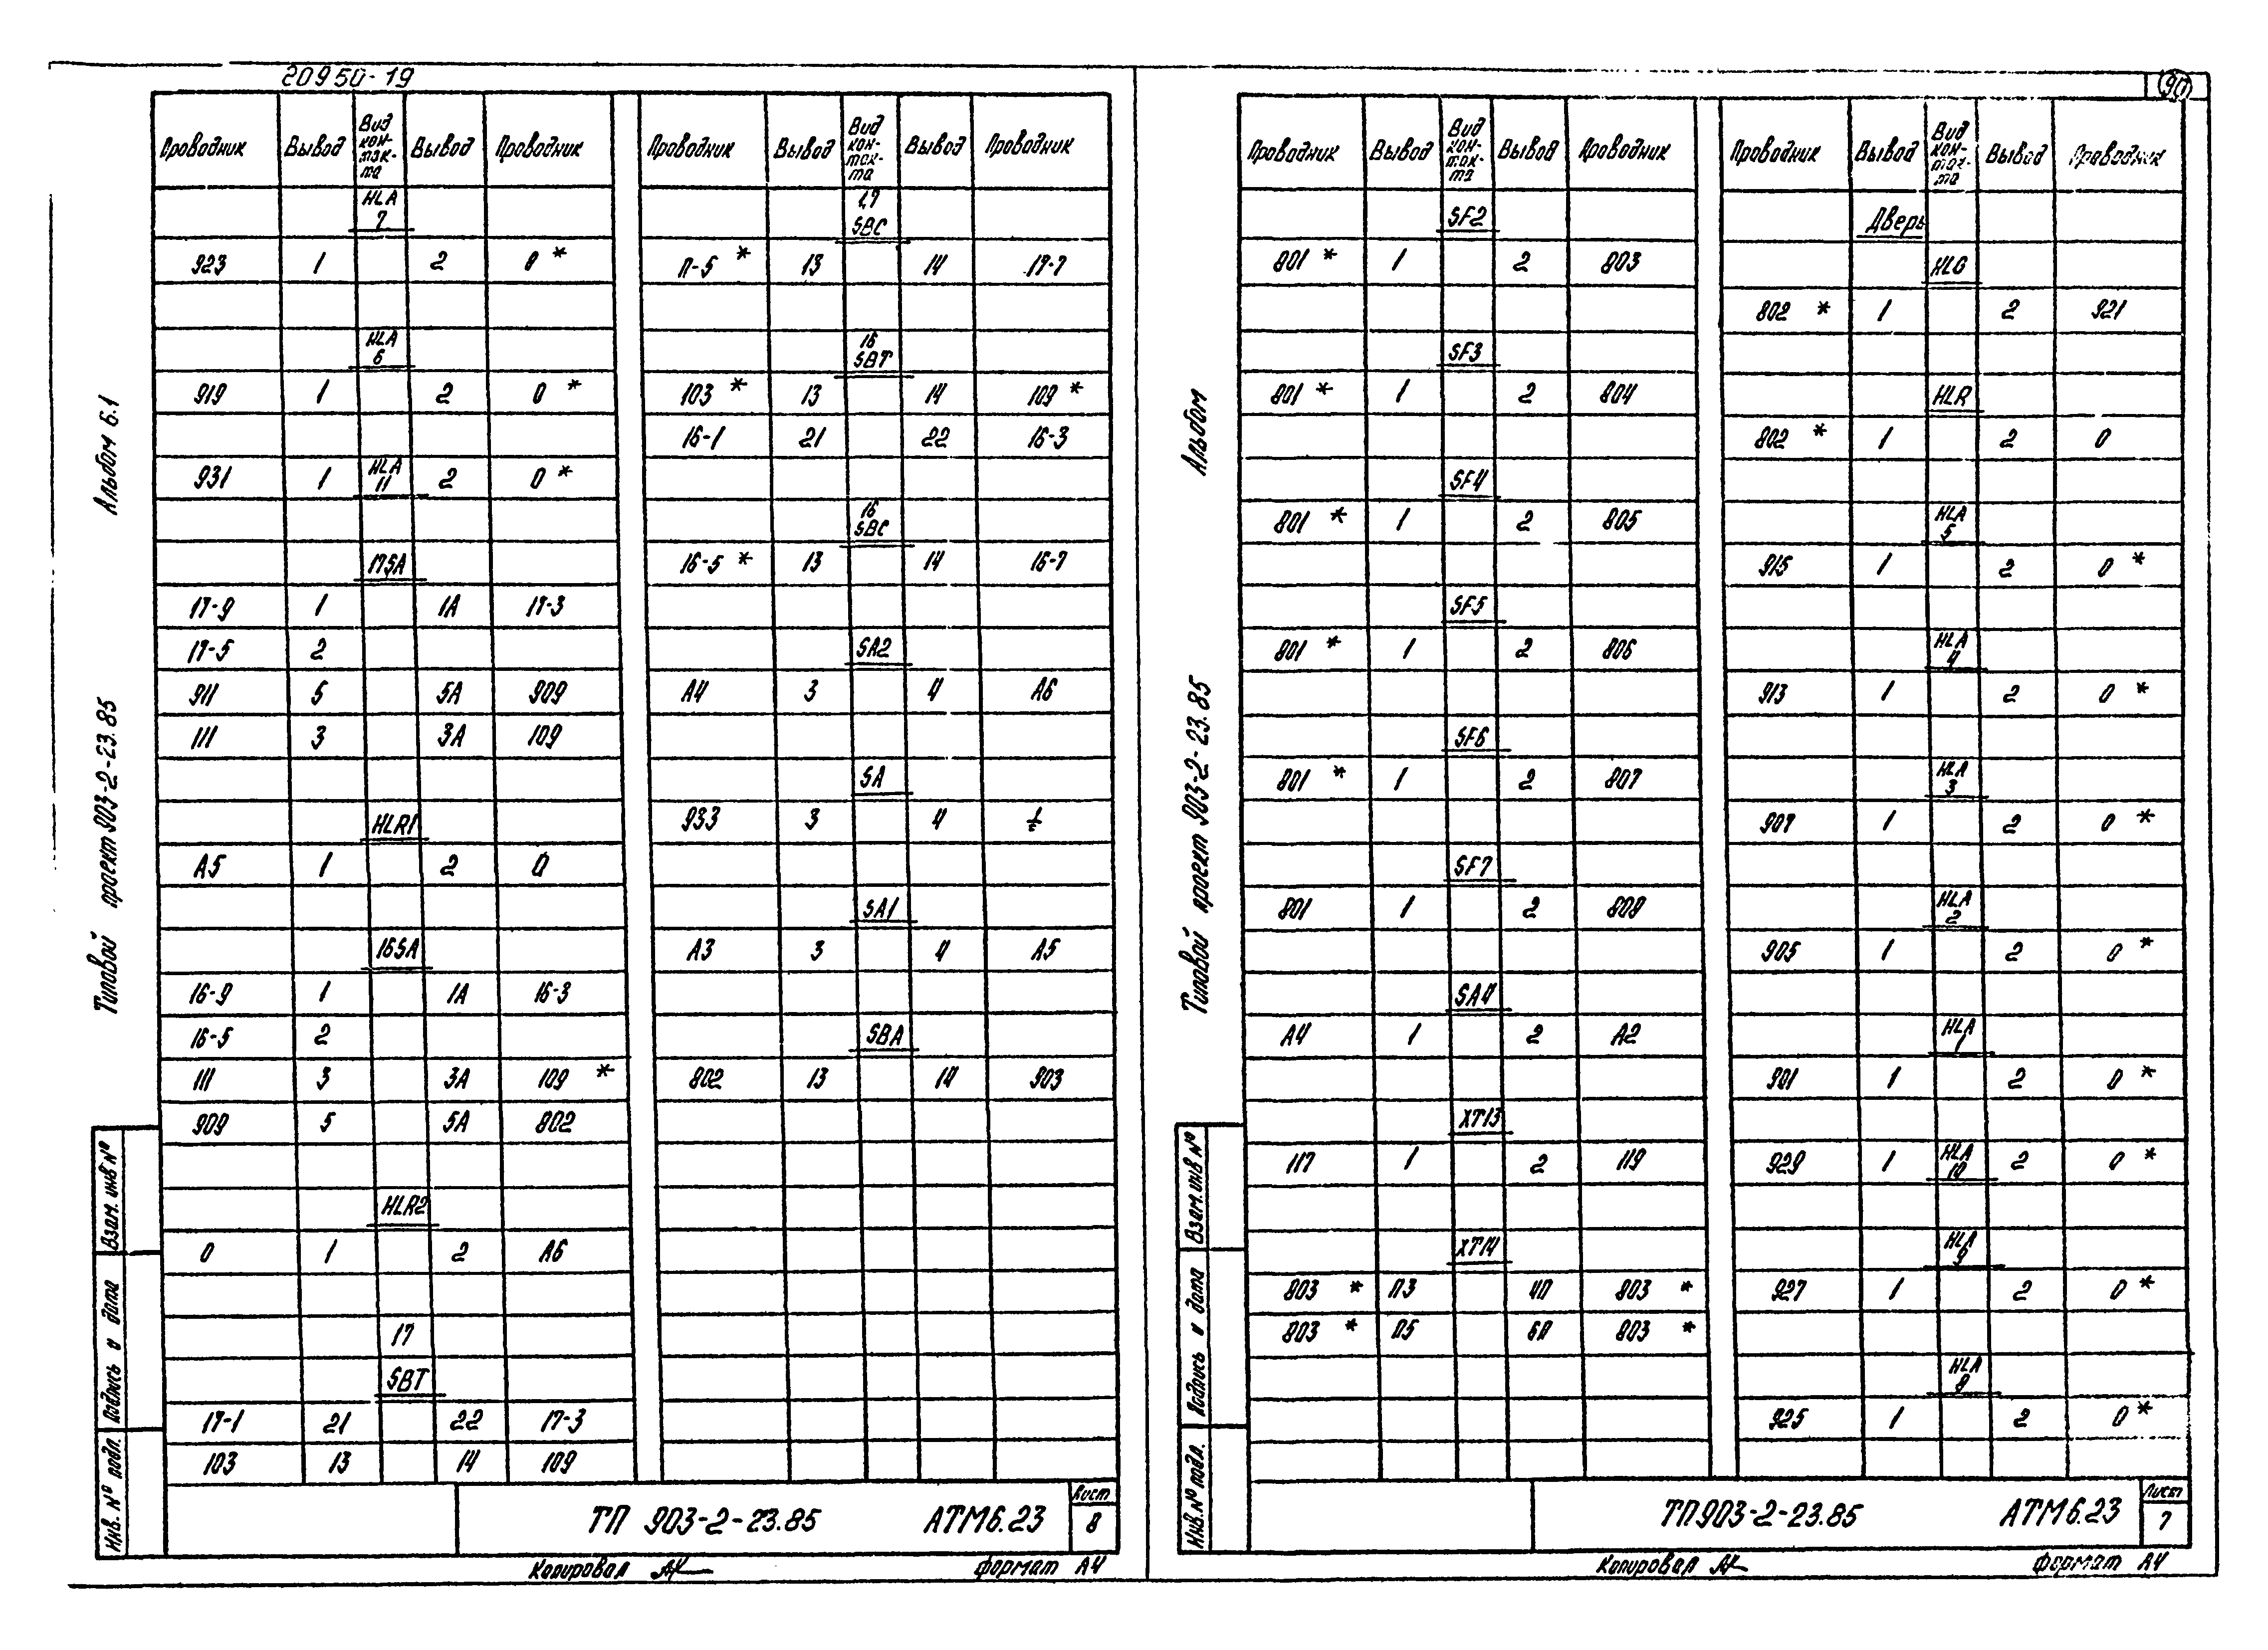 20950-19
90
Альбом 6.1
Типовой проект 903-2-23.85
Проводник Вывод Вид кон-так-та Вывод Проводник
HLA 7
923 1 2 0 *
HLA 6
919 1 2 0 *
931 1 HLA 11 2 0 *
17SA
17-9 1 1А 17-3
17-5 2
911 5 5А 909
111 3 3А 109
HLR1
А5 1 2 0
16SA
16-9 1 1А 16-3
16-5 2
111 3 3А 109 *
909 5 5А 802
HLR2
0 1 2 А6
17
SBT
17-1 21 22 17-3
103 13 14 109
Проводник Вывод Вид кон-так-та Вывод Проводник
17
SBC
П-5 * 13 14 17-7
16
SBT
103 * 13 14 109 *
16-1 21 22 16-3
16
SBC
16-5 * 13 14 16-7
SA2
А4 3 4 А6
SA
933 3 4
SA1
А3 3 4 А5
SBA
802 13 14 903
Взам. инв №
Подпись и дата
Инв. № подл.
ТП 903-2-23.85 АТМ6.23
Лист
8
Копировал
Формат А4
Альбом
Типовой проект 903-2-23.85
Проводник Вывод Вид кон-так-та Вывод Проводник
SF2
801 * 1 2 803
SF3
801 * 1 2 804
SF4
801 * 1 2 805
SF5
801 * 1 2 806
SF6
801 * 1 2 807
SF7
801 1 2 808
SA4
А4 1 2 А2
XT13
117 1 2 119
XT14
803 * П3 4П 803 *
803 * П5 6П 803 *
Проводник Вывод Вид кон-так-та Вывод Проводник
Дверь
HLG
802 * 1 2 921
HLR
802 * 1 2 0
HLA 5
915 1 2 0 *
HLA 4
913 1 2 0 *
HLA 3
907 1 2 0 *
HLA 2
905 1 2 0 *
HLA 1
901 1 2 0 *
929 1 HLA 10 2 0 *
HLA 9
927 1 2 0 *
HLA 8
925 1 2 0 *
Взам. инв №
Подпись и дата
Инв. № подл.
ТП903-2-23.85 АТМ6.23
Лист
7
Копировал
Формат А4